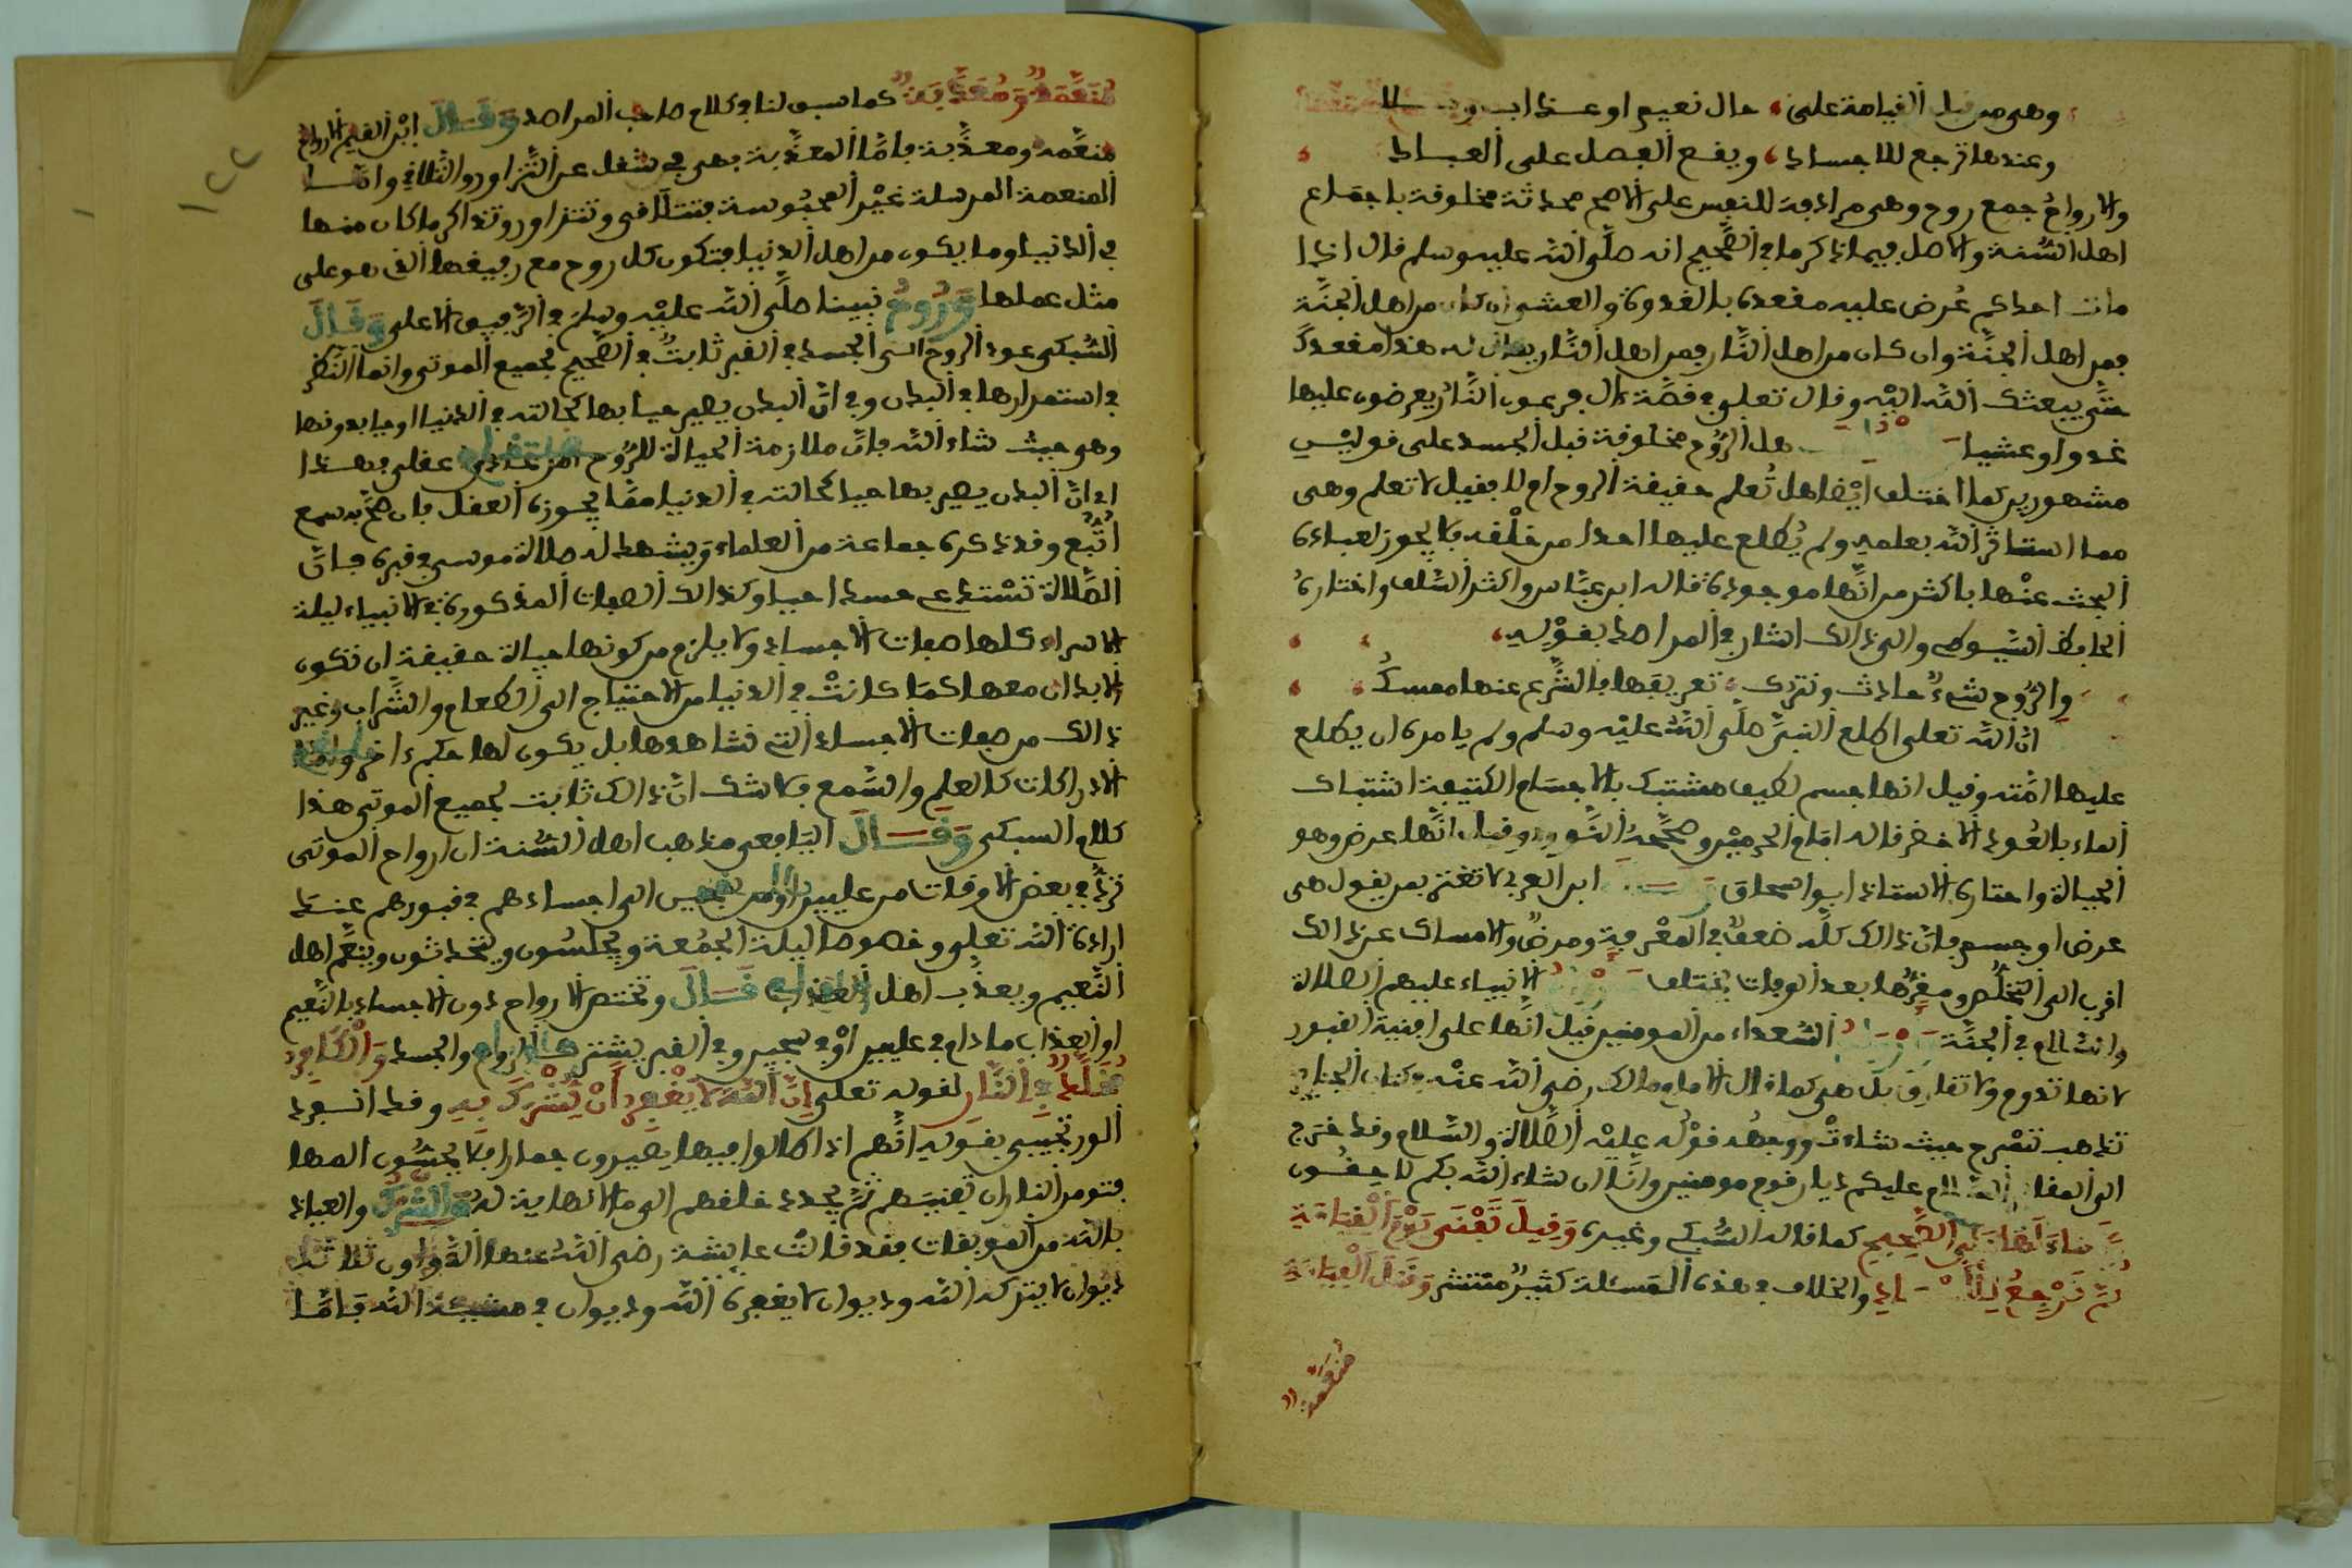 وهي من قبل القيامة على حال نعيم او عذاب
وعندها ترجع للاجساد ويقع الفصل على العباد
والارواح جمع روح وهي مرادفة للنفس على الاصح محدثة مخلوقة باجماع
اهل السنة والاصل فيما ذكر ما في الصحيح انه صلى الله عليه وسلم قال اذا
مات احدكم عرض عليه مقعده بالغدوة والعشي ان كان من اهل الجنة
فمن اهل الجنة وان كان من اهل النار فمن اهل النار يقال له هذا مقعدك
حتى يبعثك الله اليه وقال تعلى في قصة ءال فرعون النار يعرضون عليها
غدوا وعشيا هل الروح مخلوقة قبل الجسد على قولين
مشهورين كما اختلف ايضا هل تعلم حقيقة الروح ام لا فقيل لا تعلم وهي
مما استاثر الله بعلمه ولم يطلع عليها احدا من خلقه فلا يجوز لعباده
البحث عنها باكثر من انها موجودة قاله ابن عباس واكثر السلف واختاره
الحافظ السيوطي والى ذالك اشار في المراصد بقوله
والروح شيء حادث ونترك تعريفها فالشرع عنها ممسك
ان الله تعلى اطلع النبي صلى الله عليه وسلم ولم يامره ان يطلع
عليها امته وقيل انها جسم لطيف مشتبك بالاجسام الكثيفة اشتباك
الماء بالعود الاخضر قاله امام الحرمين وصححه النووي وقيل انها عرض وهو
الحياة واختاره الاستاذ ابو اسحاق ابن العربي لا تغتر بمن يقول هي
عرض او جسم فان ذالك كله ضعف في المعرفة ومرض والامساك عن ذالك
اقرب الى التخلص ومقرها بعد الوفات يختلف الانبياء عليهم الصلاة
والسلام في الجنة السعداء من المومنين قيل انها على افنية القبور
لانها تدوم ولا تفارق بل هي كما قال الامام مالك رضي الله عنه
تذهب تسرح حيث شاءت ووجهه قوله عليه الصلاة والسلام وقد خرج
الى المقابر السلام عليكم ديار قوم مومنين وانا ان شاء الله بكم لاحقون
في الصحيح كما قاله السبكي وغيره وقيل تفنى يوم القيامة
ثم ترجع والخلاف في هذه المسئلة كثير منتشر وقبل القيامة
منعمة
منعمة ومعذبة كما سبق لنا في كلام صاحب المراصد وقال ابن القيم الارواح
منعمة ومعذبة فاما المعذبة فهي في شغل عن التزاور والتلاقي واما
المنعمة المرسلة غير المحبوسة فتتلاقى وتتزاور وتتذاكر ما كان منها
في الدنيا وما يكون من اهل الدنيا فتكون كل روح مع رفيقها الذي هو على
مثل عملها وروح نبينا صلى الله عليه وسلم في الرفيق الاعلى وقال
السبكي عود الروح الى الجسد في القبر ثابت في الصحيح لجميع الموتى وانما النظر
في استمرارها في البدن وفي ان البدن يصير حيا بها كحالته في الدنيا او حيا بدونها
وهو حيث شاء الله فان ملازمة الحياة للروح امر عادي عقلي فهذا
اي ان البدن يصير بها حيا كحالته في الدنيا مما يجوزه العقل فان صح به سمع
اتبع وقد ذكره جماعة من العلماء ويشهد له صلاة موسى في قبره فان
الصلاة تستدعي جسدا حيا وكذالك الصفات المذكورة في الانبياء ليلة
الاسراء كلها صفات الاجساد ولا يلزم من كونها حياة حقيقة ان تكون
الابدان معها كما كانت في الدنيا من الاحتياج الى الطعام والشراب وغير
ذالك من صفات الاجساد التي نشاهدها بل يكون لها حكم ءاخر واما
الادراكات كالعلم والسمع فلا شك ان ذالك ثابت لجميع الموتى هذا
كلام السبكي وقال اليافعي مذهب اهل السنة ان ارواح الموتى
ترد في بعض الاوقات من عليين او من سجين الى اجسادهم في قبورهم عند
ارادة الله تعلى وخصوصا ليلة الجمعة ويجلسون ويتحدثون وينعم اهل
النعيم ويعذب اهل العذاب قال وتختص الارواح دون الاجساد بالنعيم
او العذاب ما دام في عليين او في سجين وفي القبر يشترك الروح والجسد والكافر
مخلد في النار لقوله تعلى ان الله لا يغفر ان يشرك به وقد انفرد
الورتجيبي بقوله انهم اذا طالوا فيها يصيرون جمارا فلا يحسون المها
فتومر النار ان تفنيهم ثم يجدد خلقهم الى ما لا نهاية له والشرك والعياذ
بالله من الموبقات فقد قالت عايشة رضي الله عنها الدواوين ثلاثة
ديوان لا يتركه الله وديوان لا يغفره الله وديوان في مشيئة الله فاما